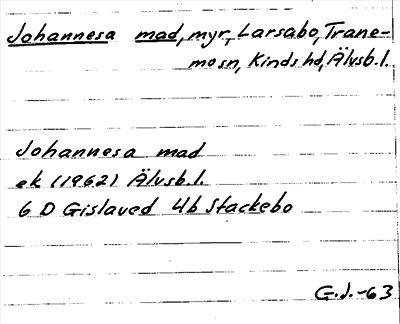 Johannesa mad, myr, Larsabo, Trane-
mo sn, Kinds hd, Älvsb. l.
Johannesa mad
ek (1962) Älvsb. l.
6 D Gislaved 4b Stackebo
G.J.-63